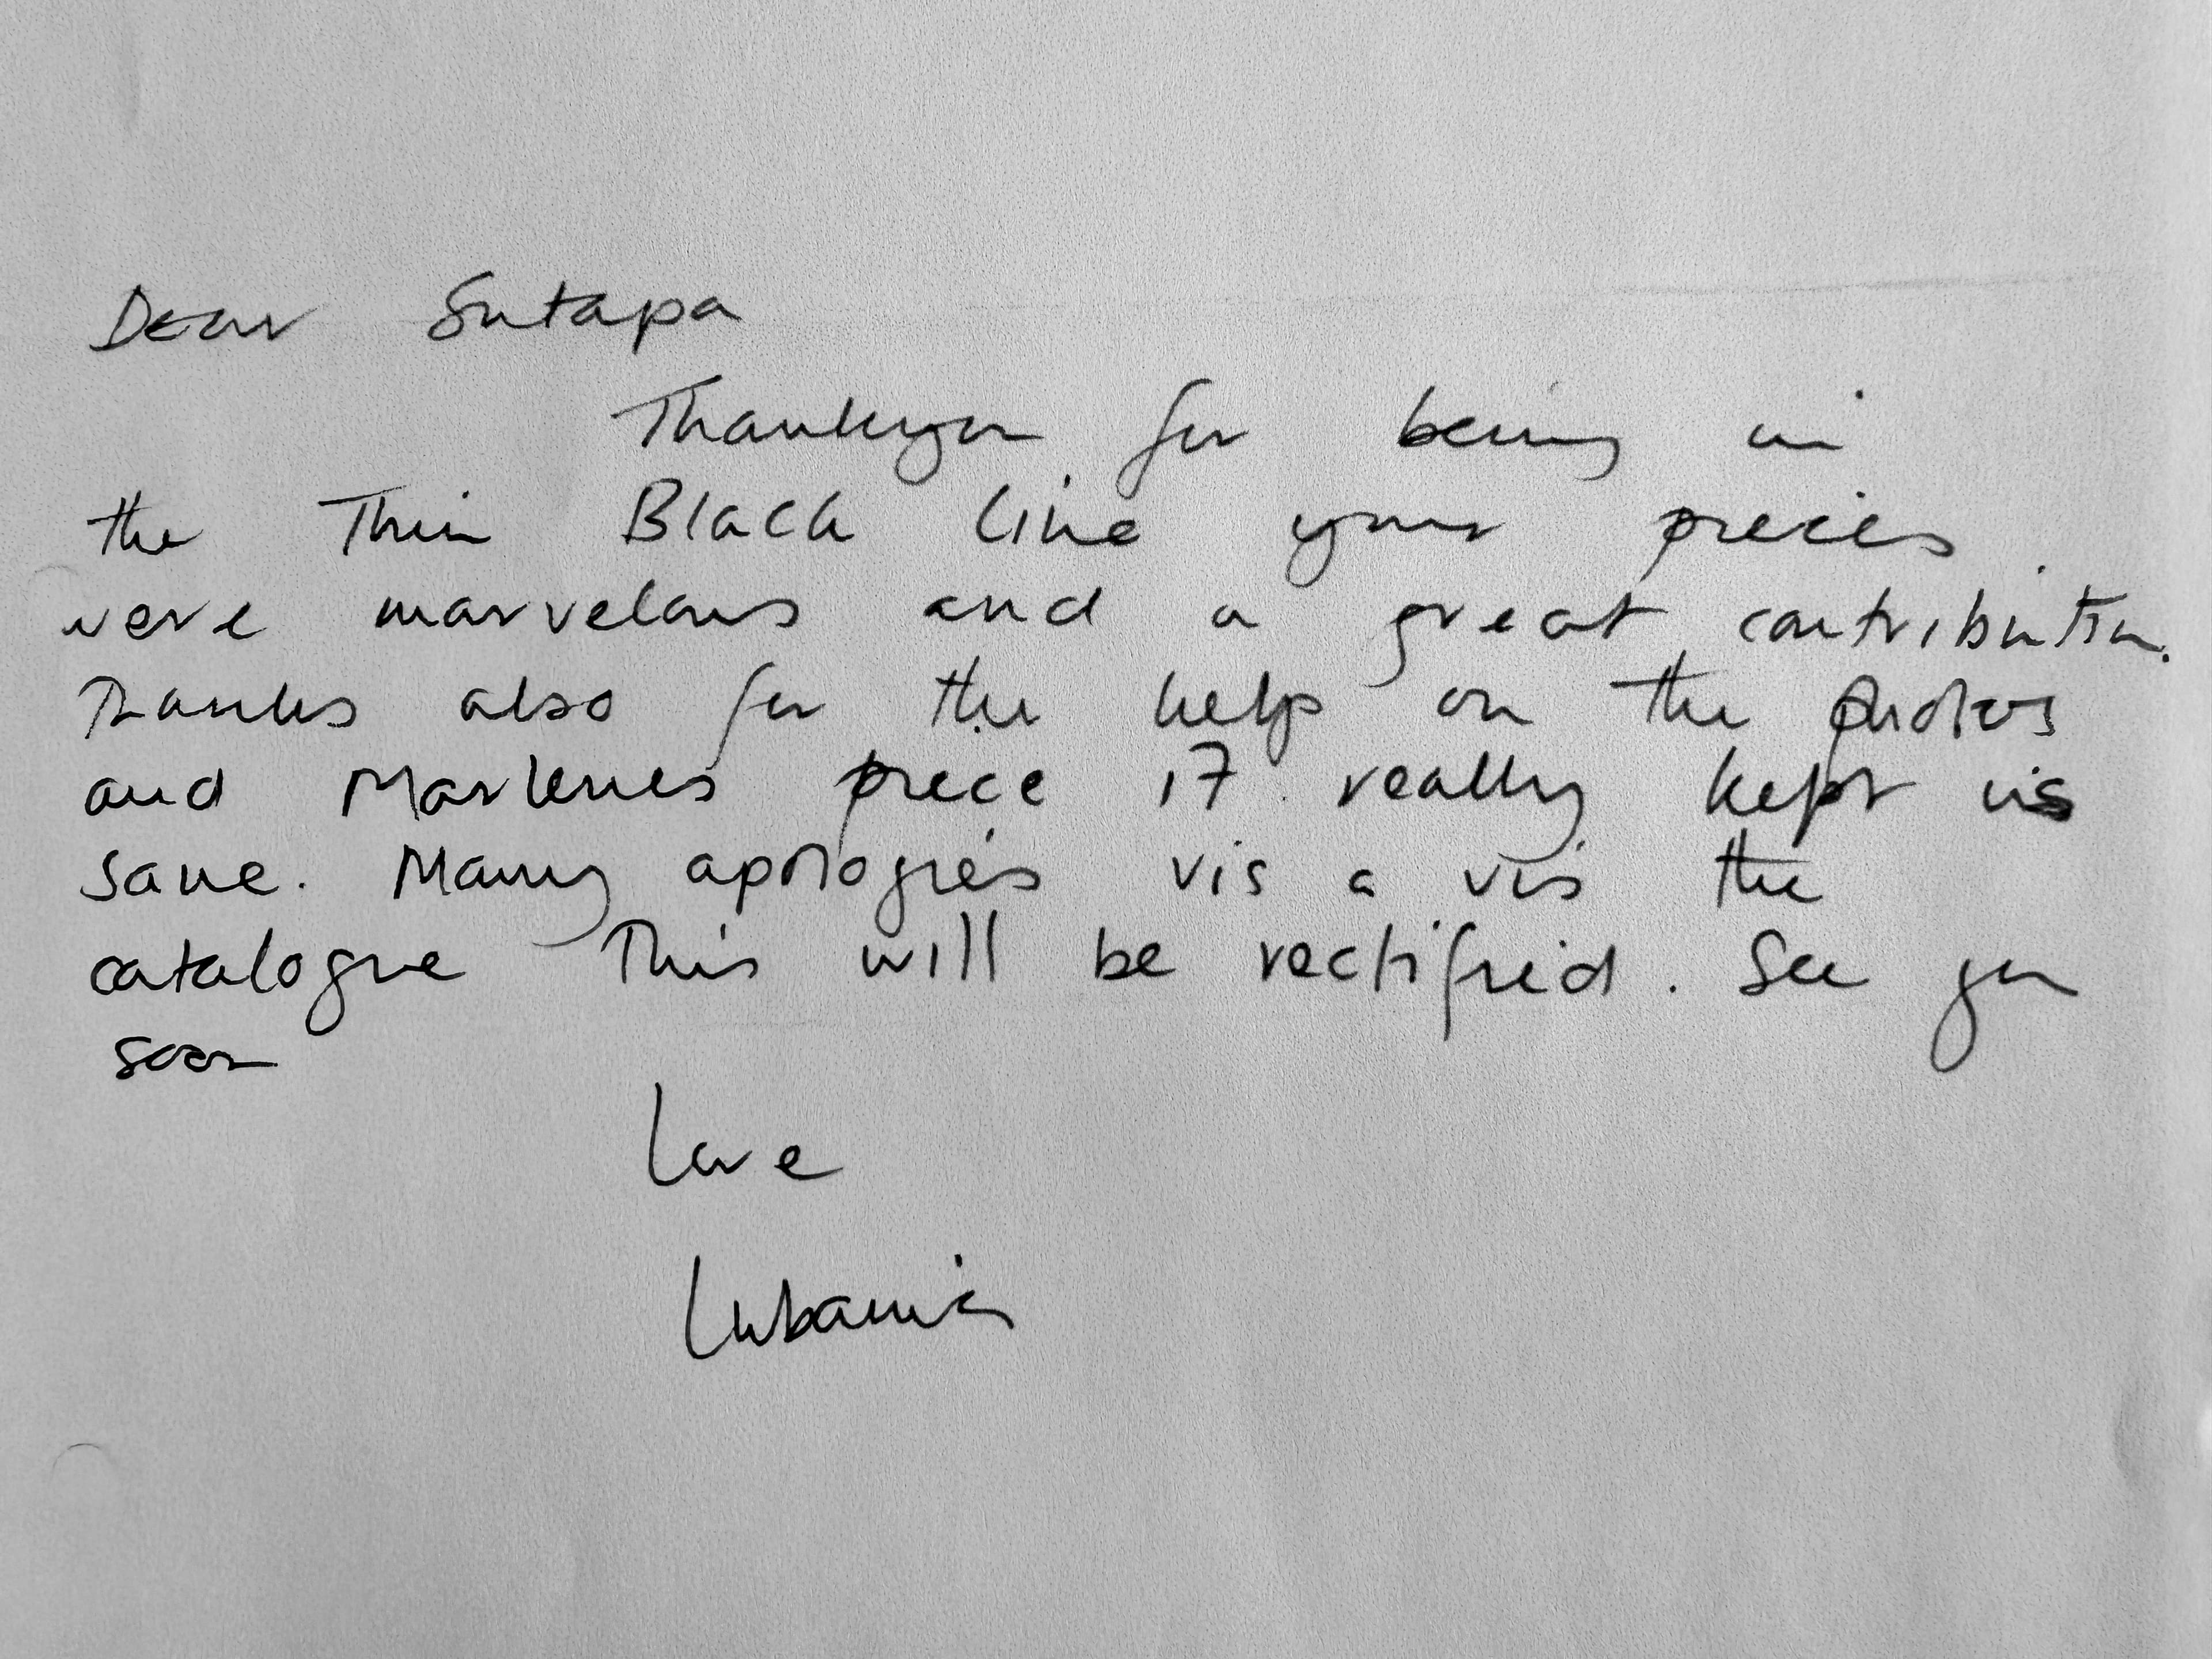 Dear Sutapa
Thankyou for being in
the Thin Black Line your pieces
were marvelous and a great contribution.
Thanks also for the help on the photos
and Marlenes piece it really kept us
sane. Many apologies vis a vis the
catalogue This will be rectified. See you
soon
Love
Lubaina